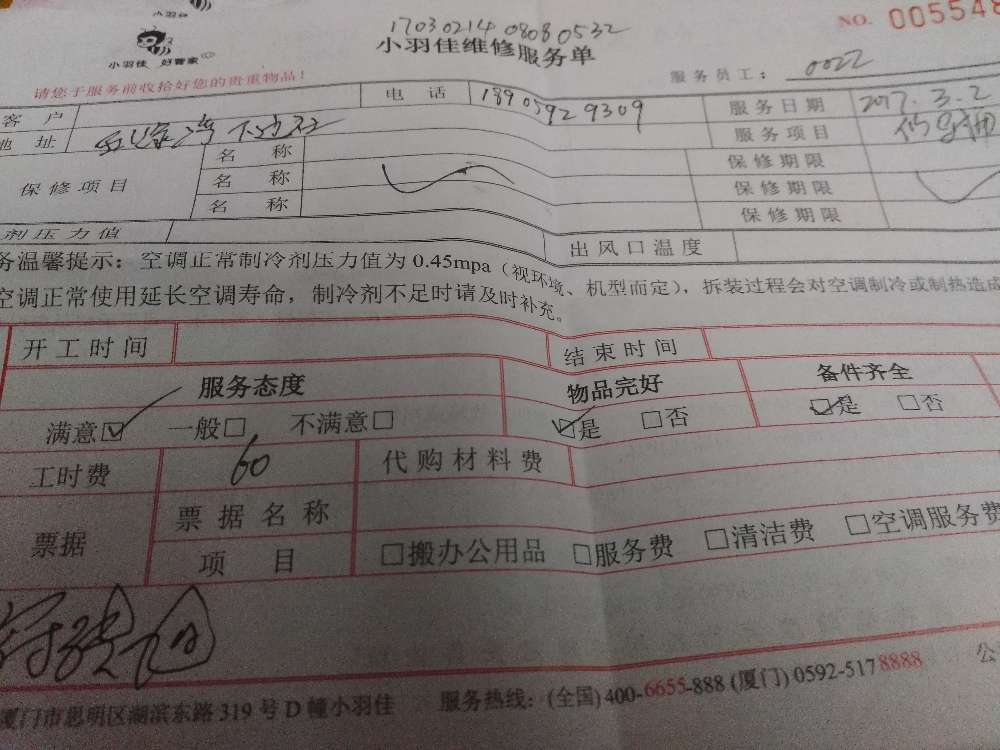 小羽佳
17030214 08080532
NO. 005548
小羽佳 好管家
小羽佳维修服务单
服务员工： 0022
请您于服务前收拾好您的贵重物品！
客 户 电 话 18905929309 服务日期 2017.3.2
地 址 服务项目
保修项目 名 称 保修期限
名 称 保修期限
名 称 保修期限
剂压力值 出风口温度
务温馨提示：空调正常制冷剂压力值为0.45mpa（视环境、机型而定），拆装过程会对空调制冷或制热造成
空调正常使用延长空调寿命，制冷剂不足时请及时补充。
开工时间 结束时间
服务态度 物品完好 备件齐全
满意☑ 一般□ 不满意□ ☑是 □否 ☑是 □否
工时费 60 代购材料费
票据 票据名称
项 目 □搬办公用品 □服务费 □清洁费 □空调服务费
厦门市思明区湖滨东路319号D幢小羽佳 服务热线：(全国)400-6655-888 (厦门) 0592-5178888 公